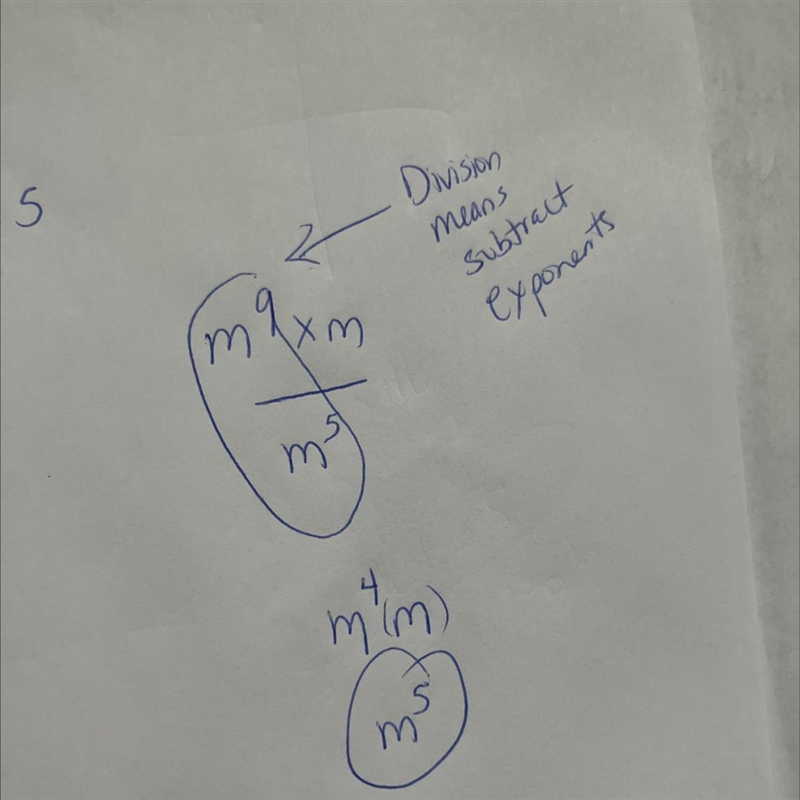 5
Division
means
subtract
exponents
m⁹ x m
m⁵
m⁴(m)
m⁵